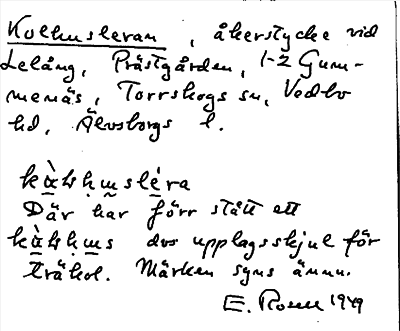 Kolhusleran, åkerstycke vid
Lelång, Prästgården, 1-2 Gum-
menäs, Torrskogs sn, Vedbo
hd, Älvsborgs l.
Där har förr stått ett
dvs upplagsskjul för
träkol. Märken syns ännu.
E. Rosen 1949